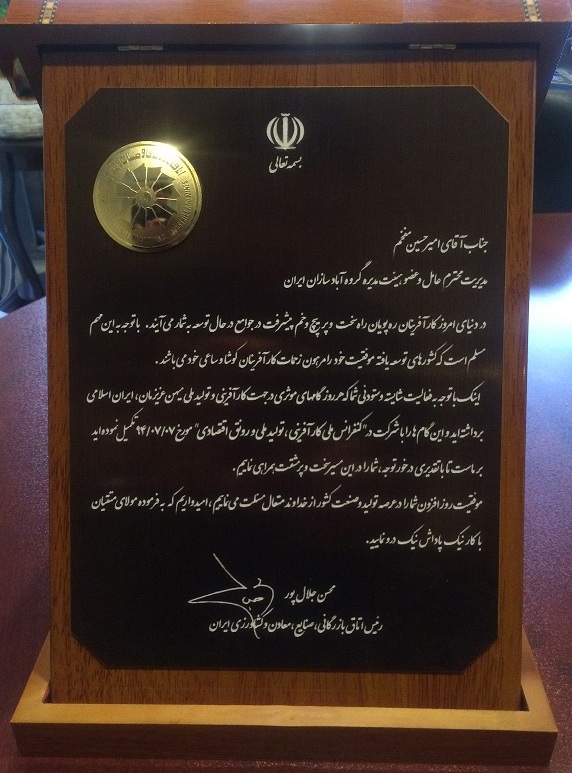 بسمه تعالی
جناب آقای امیرحسین مفخم
مدیریت محترم عامل و عضو هیئت مدیره گروه آبادسازان ایران
در دنیای امروز کارآفرینان ره پویان راه سخت و پر پیچ و خم پیشرفت در جوامع در حال توسعه به شمار می آیند. با توجه به این مهم
مسلم است که کشورهای توسعه یافته موفقیت خود را مرهون زحمات کارآفرینان کوشا و ساعی خود می باشند.
اینک با توجه به فعالیت شایسته و ستودنی شما که هر روز گامهای موثری در جهت کارآفرینی و تولید ملی میهن عزیزمان، ایران اسلامی
برداشته اید و این گام ها را با شرکت در "کنفرانس ملی کارآفرینی، تولید ملی و رونق اقتصادی" مورخ ۹۴/۰۷/۰۷ تکمیل نموده اید
بر ماست تا با تقدیری درخور توجه، شما را در این مسیر سخت و پرمشقت همراهی نماییم.
موفقیت روز افزون شما را در عرصه تولید و صنعت کشور از خداوند متعال مسئلت می نماییم، امیدواریم که به فرموده مولای متقیان
با کار نیک پاداش نیک درو نمایید.
محسن جلال پور
رئیس اتاق بازرگانی، صنایع، معادن و کشاورزی ایران